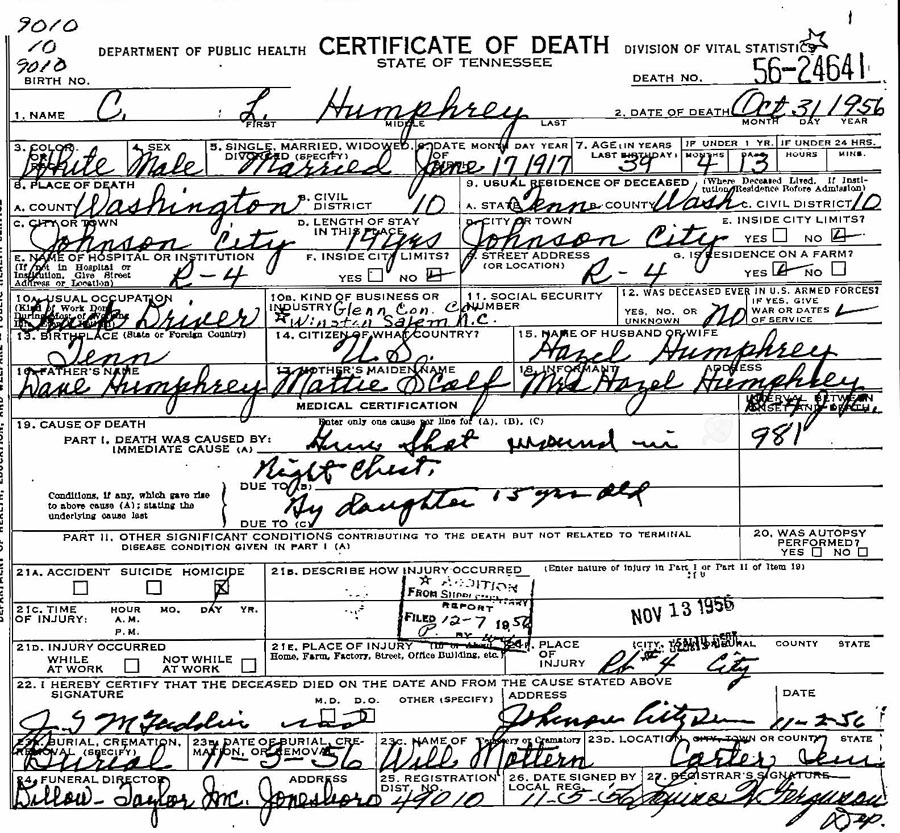 9010
10
9010
1
DEPARTMENT OF PUBLIC HEALTH CERTIFICATE OF DEATH DIVISION OF VITAL STATISTICS
STATE OF TENNESSEE
BIRTH NO. DEATH NO. 56-24641
1. NAME C. L. Humphrey 2. DATE OF DEATH Oct 31 1956
FIRST MIDDLE LAST MONTH DAY YEAR
3. COLOR OR RACE White 4. SEX Male 5. SINGLE, MARRIED, WIDOWED, DIVORCED (SPECIFY) Married 6. DATE OF BIRTH MONTH DAY YEAR June 17 1917 7. AGE (IN YEARS LAST BIRTHDAY) 39 IF UNDER 1 YR. MONTHS 4 DAYS 13 IF UNDER 24 HRS. HOURS MINS.
8. PLACE OF DEATH 9. USUAL RESIDENCE OF DECEASED (Where Deceased Lived. If Institution, Residence Before Admission)
A. COUNTY Washington B. CIVIL DISTRICT 10 A. STATE Tenn B. COUNTY Wash C. CIVIL DISTRICT 10
C. CITY OR TOWN Johnson City D. LENGTH OF STAY IN THIS PLACE 19 yrs D. CITY OR TOWN Johnson City E. INSIDE CITY LIMITS? YES NO
E. NAME OF HOSPITAL OR INSTITUTION (If not in Hospital or Institution, Give Street Address or Location) R-4 F. INSIDE CITY LIMITS? YES NO F. STREET ADDRESS (OR LOCATION) R-4 G. IS RESIDENCE ON A FARM? YES NO
10A. USUAL OCCUPATION (Kind of Work Done During Most of Working Life) Truck Driver 10B. KIND OF BUSINESS OR INDUSTRY Glenn Con. Co. * Winston Salem N.C. 11. SOCIAL SECURITY NUMBER 12. WAS DECEASED EVER IN U.S. ARMED FORCES? YES, NO, OR UNKNOWN No IF YES, GIVE WAR OR DATES OF SERVICE
13. BIRTHPLACE (State or Foreign Country) Tenn 14. CITIZEN OF WHAT COUNTRY? U.S. 15. NAME OF HUSBAND OR WIFE Hazel Humphrey
16. FATHER'S NAME Dave Humphrey 17. MOTHER'S MAIDEN NAME Mattie Scalf 18. INFORMANT ADDRESS Mrs Hazel Humphrey
MEDICAL CERTIFICATION INTERVAL BETWEEN ONSET AND DEATH
19. CAUSE OF DEATH Enter only one cause per line for (A), (B), (C)
PART I. DEATH WAS CAUSED BY: IMMEDIATE CAUSE (A) Gun Shot wound in 981
Right Chest.
Conditions, if any, which gave rise to above cause (A); stating the underlying cause last
DUE TO (B) By daughter 15 yrs old
DUE TO (C)
PART II. OTHER SIGNIFICANT CONDITIONS CONTRIBUTING TO THE DEATH BUT NOT RELATED TO TERMINAL DISEASE CONDITION GIVEN IN PART I (A) 20. WAS AUTOPSY PERFORMED? YES NO
21A. ACCIDENT SUICIDE HOMICIDE X 21B. DESCRIBE HOW INJURY OCCURRED (Enter nature of injury in Part I or Part II of Item 19)
21C. TIME OF INJURY: HOUR MO. DAY YR. A.M. P.M.
ADDITION FROM SUPPLEMENTARY REPORT FILED 12-7 1956 BY
NOV 13 1956
21D. INJURY OCCURRED WHILE AT WORK NOT WHILE AT WORK 21E. PLACE OF INJURY Home, Farm, Factory, Street, Office Building, etc. 21F. PLACE OF INJURY Rt #4 City COUNTY STATE
22. I HEREBY CERTIFY THAT THE DECEASED DIED ON THE DATE AND FROM THE CAUSE STATED ABOVE
SIGNATURE M.D. D.O. OTHER (SPECIFY) ADDRESS DATE
Johnson City Tenn 11-2-56
23A. BURIAL, CREMATION, REMOVAL (SPECIFY) Burial 23B. DATE OF BURIAL, CREMATION, OR REMOVAL 11-3-56 23C. NAME OF Cemetery or Crematory Will Mottern 23D. LOCATION CITY, TOWN OR COUNTY STATE Carter Tenn
24. FUNERAL DIRECTOR ADDRESS Dillow-Taylor Inc. Jonesboro 25. REGISTRATION DIST. NO. 49010 26. DATE SIGNED BY LOCAL REG. 11-5-56 27. REGISTRAR'S SIGNATURE Ferguson
Dep.